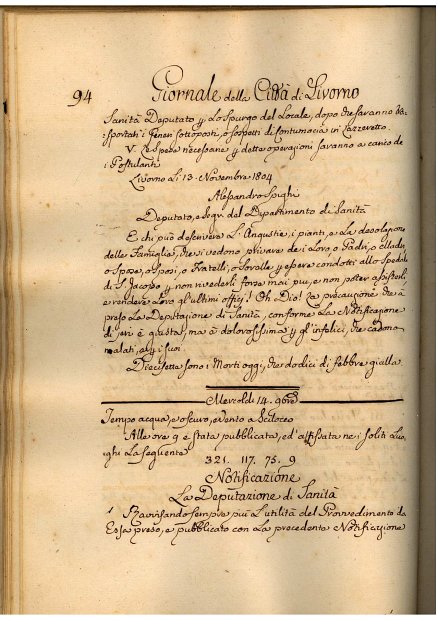 94 Giornale della Città di Livorno
Sanità Deputato p Lo Spurgo del Locale, dopo che saranno tra-
sportati i Generi sottoposti, o sospetti di Contumacia in Lazzeretto.
V. Le spese necessarie p dette operazioni saranno a carico de
i Postulanti
Livorno Li 13. Novembre 1804
Alessandro Spighi
Deputato, e Segr. del Dipartimento di Sanità
E chi può descrivere L'Angustie, i pianti, e La desolazione
delle Famiglie, che si vedono privare de i Loro o Padri, o Madri,
o Spose, o Sposi, o Fratelli, o Sorelle p essere condotti allo Spedale
di S. Jacopo p non rivederli forse mai piu, e non poter assisterli,
e rendere Loro gl'ultimi offizj! Oh Dio! La precauzione che à
preso La Deputazione di Sanità, conforme La Notificazione
di jeri è giusta, ma è dolorosissima p gl'infelici, che cadono
malati, e p i suoi.
Diecisette sono i Morti oggi, che dodici di febbre gialla
Mercoldì 14. 9bre
Tempo acqua, e oscuro, e vento a Scilocco
Alle ore 9 è stata pubblicata, ed'affissata ne i soliti Luo-
ghi La seguente
321. 117. 75. 9
Notificazione
La Deputazione di Sanità
Ravvisando sempre più L'utilità del Provvedimento da
Essa preso, e pubblicato con La precedente Notificazione